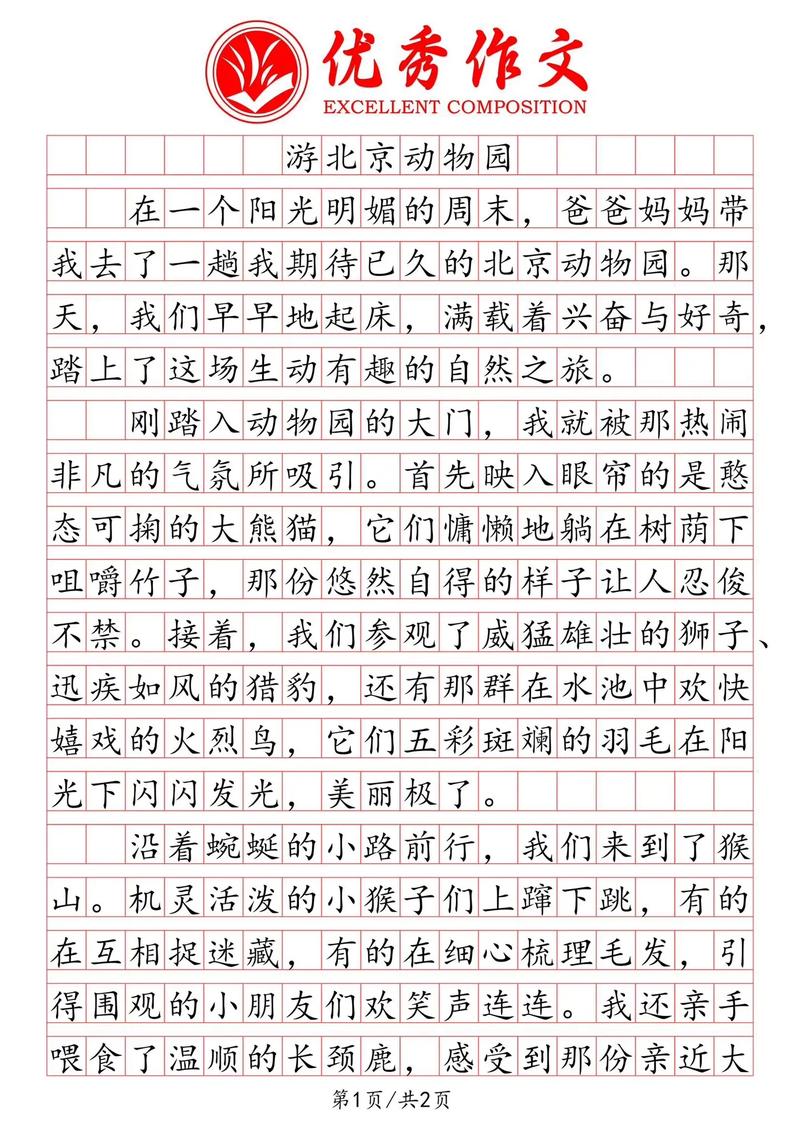 优秀作文
EXCELLENT COMPOSITION
游北京动物园
在一个阳光明媚的周末，爸爸妈妈带
我去了一趟我期待已久的北京动物园。那
天，我们早早地起床，满载着兴奋与好奇，
踏上了这场生动有趣的自然之旅。
刚踏入动物园的大门，我就被那热闹
非凡的气氛所吸引。首先映入眼帘的是憨
态可掬的大熊猫，它们慵懒地躺在树荫下
咀嚼竹子，那份悠然自得的样子让人忍俊
不禁。接着，我们参观了威猛雄壮的狮子、
迅疾如风的猎豹，还有那群在水池中欢快
嬉戏的火烈鸟，它们五彩斑斓的羽毛在阳
光下闪闪发光，美丽极了。
沿着蜿蜒的小路前行，我们来到了猴
山。机灵活泼的小猴子们上蹿下跳，有的
在互相捉迷藏，有的在细心梳理毛发，引
得围观的小朋友们欢笑声连连。我还亲手
喂食了温顺的长颈鹿，感受到那份亲近大
第1页/共2页